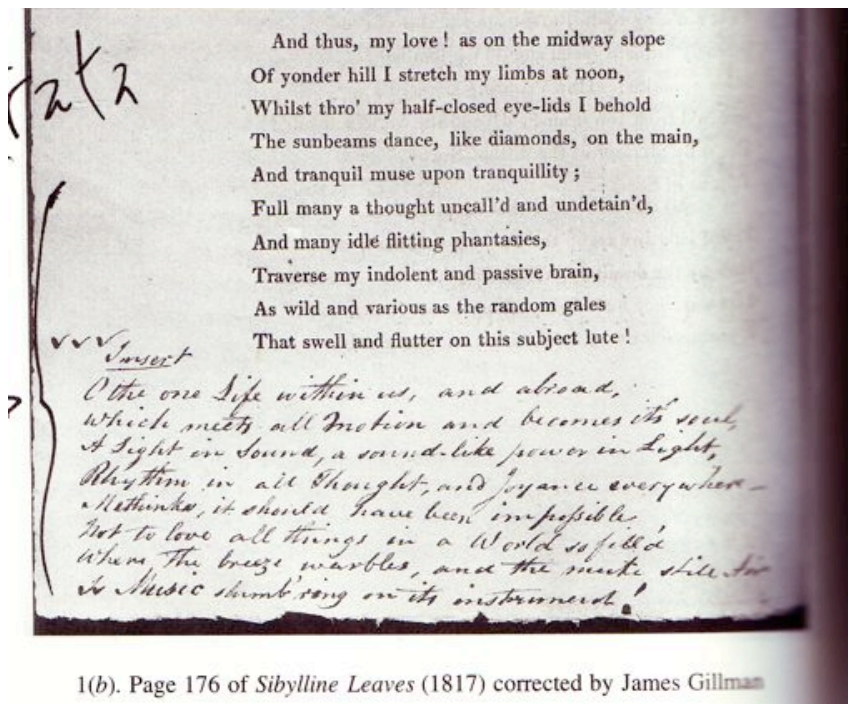 And thus, my love! as on the midway slope
Of yonder hill I stretch my limbs at noon,
Whilst thro' my half-closed eye-lids I behold
The sunbeams dance, like diamonds, on the main,
And tranquil muse upon tranquillity;
Full many a thought uncall'd and undetain'd,
And many idle flitting phantasies,
Traverse my indolent and passive brain,
As wild and various as the random gales
That swell and flutter on this subject lute!
Insert
O the one Life within us, and abroad,
Which meets all Motion and becomes its soul,
A Light in Sound, a sound-like power in Light,
Rhythm in all Thought, and Joyance every where—
Methinks, it should have been impossible
Not to love all things in a World so fill'd
Where the breeze warbles, and the mute still Air
Is Music slumb'ring on its instrument!
1(b). Page 176 of Sibylline Leaves (1817) corrected by James Gillman